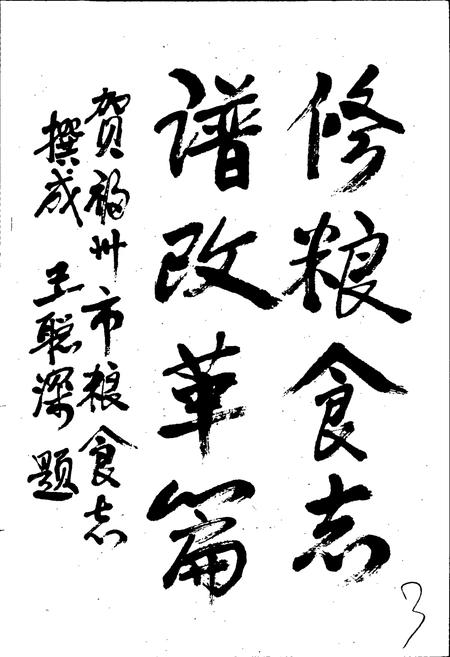 修粮食志
谱改革篇
贺福州市粮食志
撰成 王聪深题
3